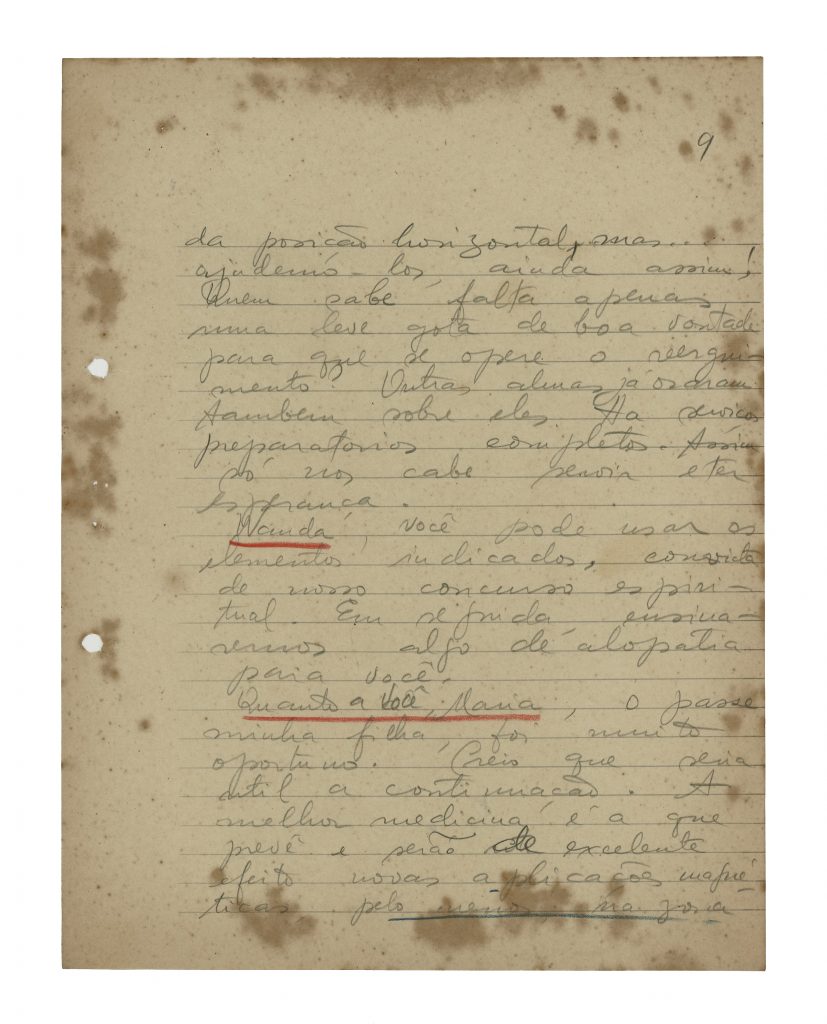 9
da posição horizontal, mas...
ajudemô-los, ainda assim!
Quem sabe falta apenas
uma leve gota de boa vontade
para que se opere o reergui-
mento? Outras almas já oraram
tambem sobre eles. Ha serviços
preparatorios completos. Assim
só nos cabe servir e ter
esperança.
Wanda, você pode usar os
elementos indicados, convicta
de nosso concurso espiri-
tual. Em seguida ensina-
remos algo de alopatia
para você.
Quanto a você, Maria, o passe
minha filha, foi muito
oportuno. Creio que seria
util a continuação. A
melhor medicina é a que
prevê e serão de excelente
efeito novas aplicações magné-
ticas pelo menos na zona